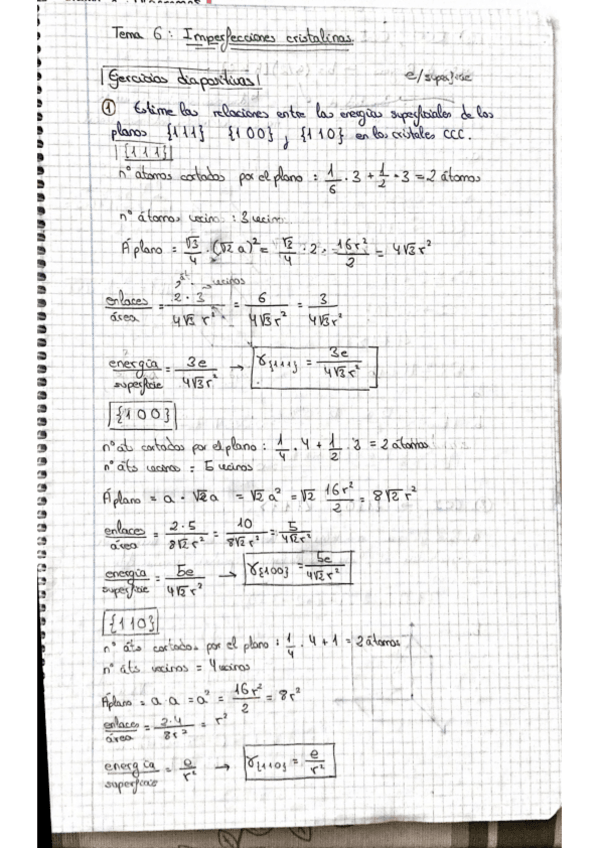 Tema 6: Imperfecciones cristalinas
Ejercicios diapositivas
e/superficie
① Estime las relaciones entre las energías superficiales de los
planos {111} {100} y {110} en los cristales CCC.
{111}
nº átomos cortados por el plano : 1/6 · 3 + 1/2 · 3 = 2 átomos
nº átomos vecin : 3 vecin
Áplano = √3/4 · (√2 a)² = √2/4 · 2 · 16r²/2 = 4√3 r²
vecinos
enlaces/área = 2 · 3/4√3 r² = 6/4√3 r² = 3/4√3 r²
energía/superficie = 3e/4√3 r² → γ{111} = 3e/4√3 r²
{100}
nº at cortados por el plano : 1/4 · 4 + 1/2 · 3 = 2 átomos
nº áts vecinos = 5 vecinos
Áplano = a · √2 a = √2 a² = √2 16r²/2 = 8√2 r²
enlaces/área = 2 · 5/8√2 r² = 10/8√2 r² = 5/4√2 r²
energía/superficie = 5e/4√2 r² → γ{100} = 5e/4√2 r²
{110}
nº áts cortados por el plano : 1/4 · 4 + 1 = 2 átomos
nº áts vecinos = 4 vecinos
Áplano = a · a = a² = 16r²/2 = 8r²
enlaces/área = 2 · 4/8r² = r²
energía/superficie = e/r² → γ{110} = e/r²